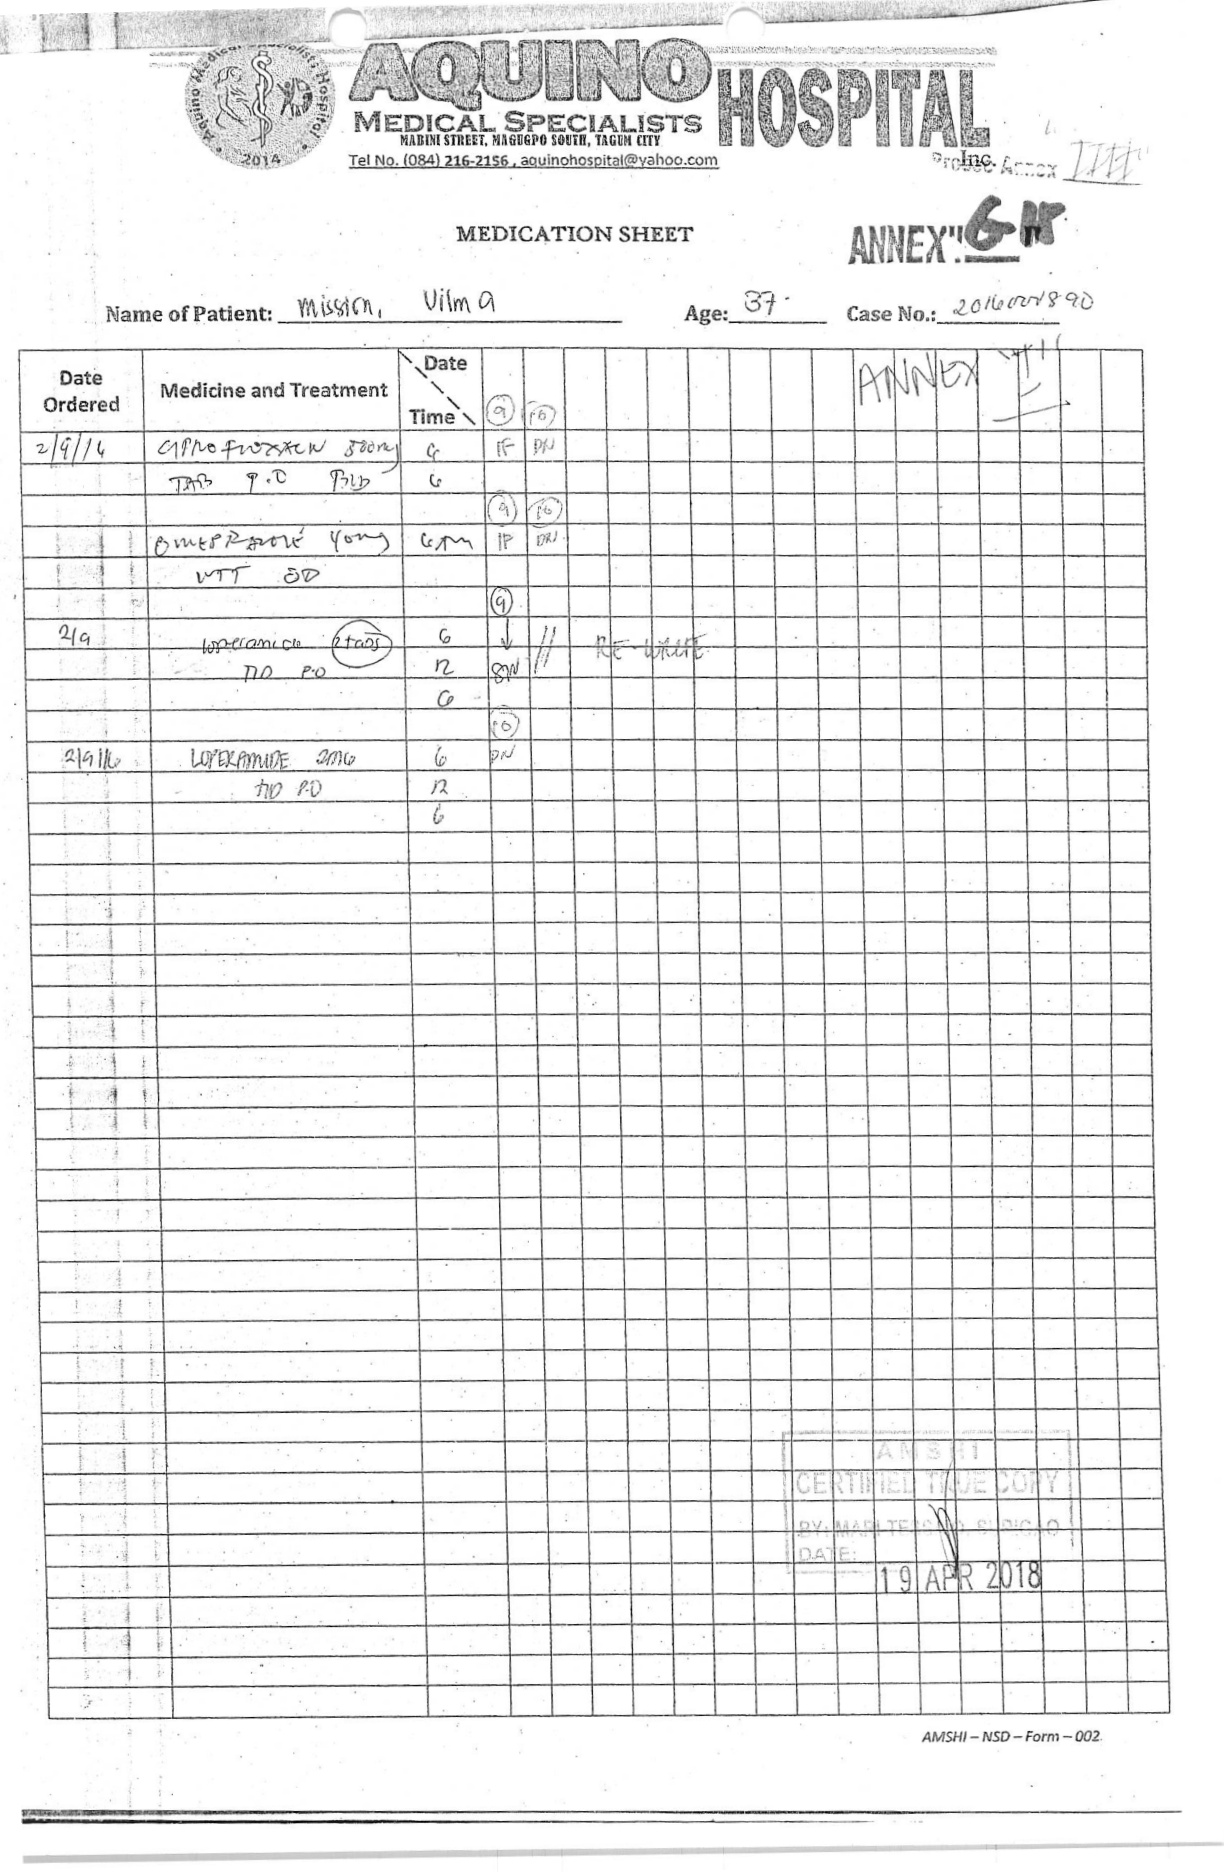 Aquino Medical Specialists Hospital
2014
AQUINO HOSPITAL
MEDICAL SPECIALISTS
MABINI STREET, MAGUGPO SOUTH, TAGUM CITY
Tel No. (084) 216-2156 , aquinohospital@yahoo.com
Inc.
Annex
MEDICATION SHEET
ANNEX"G
Name of Patient: Mission, Vilma Age: 37 Case No.:
Date Ordered Medicine and Treatment Date Time ANNEX
9 10
2/9/16 CIPROFLOXACIN 500mg 6 DN
TAB P.O BID 6
9 10
OMEPRAZOLE 40mg 6AM DN
OD
9
2/9 loperamide 2tabs 6 RE-WRITE
TID P.O 12
6
10
2/9/16 LOPERAMIDE 2MG 6 DN
TID P.O 12
6
AMSHI
CERTIFIED TRUE COPY
BY:
DATE:
19 APR 2018
AMSHI – NSD – Form – 002